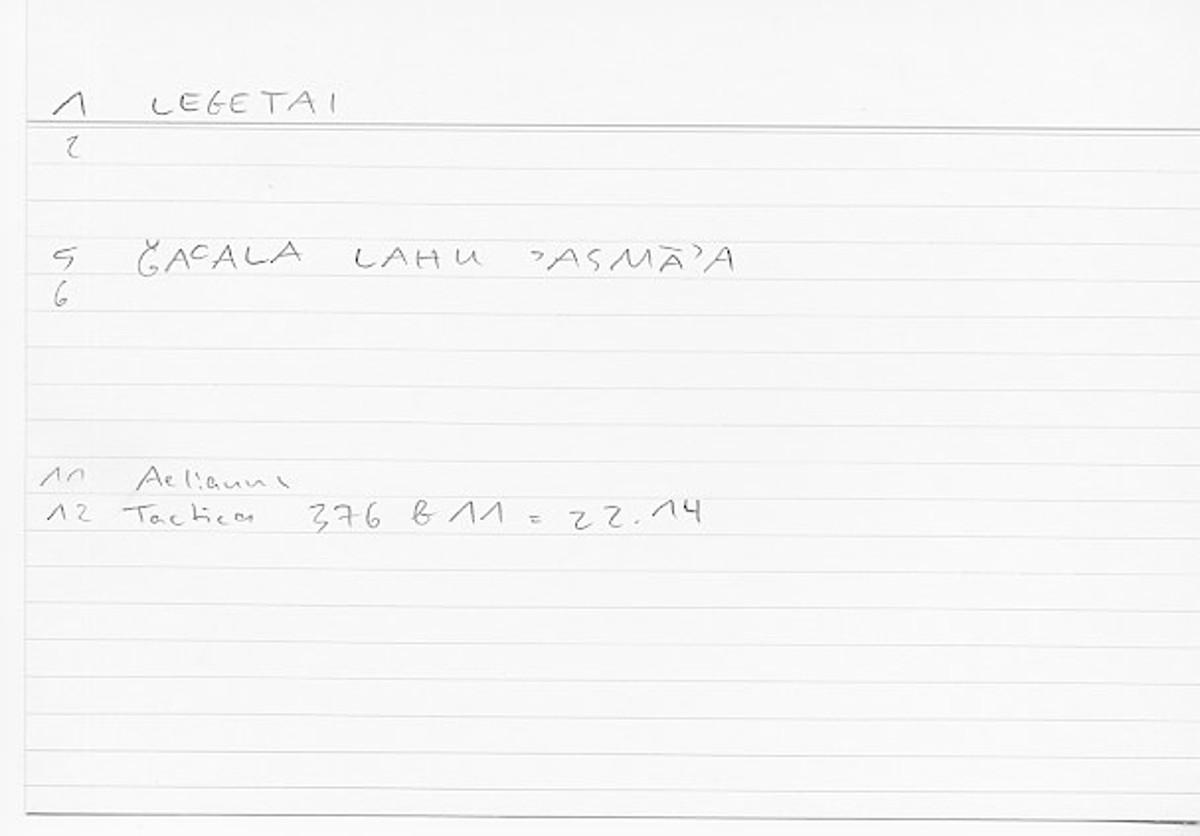 1 LEGETAI
2
5 ǦAʿALA LAHU ʾASMĀʾA
6
11 Aelianus
12 Tactica 376 b 11 = 22.14